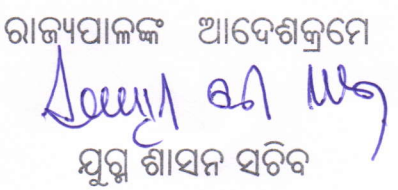 ରାଜ୍ୟପାଳଙ୍କ ଆଦେଶକ୍ରମେ
ଯୁଗ୍ମ ଶାସନ ସଚିବ